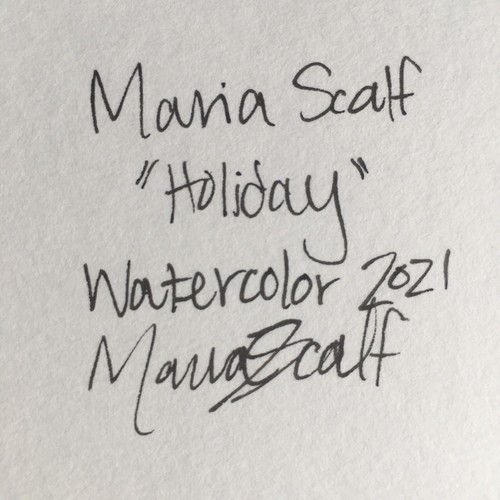 Maria Scalf
"Holiday"
Watercolor 2021
Maria Scalf